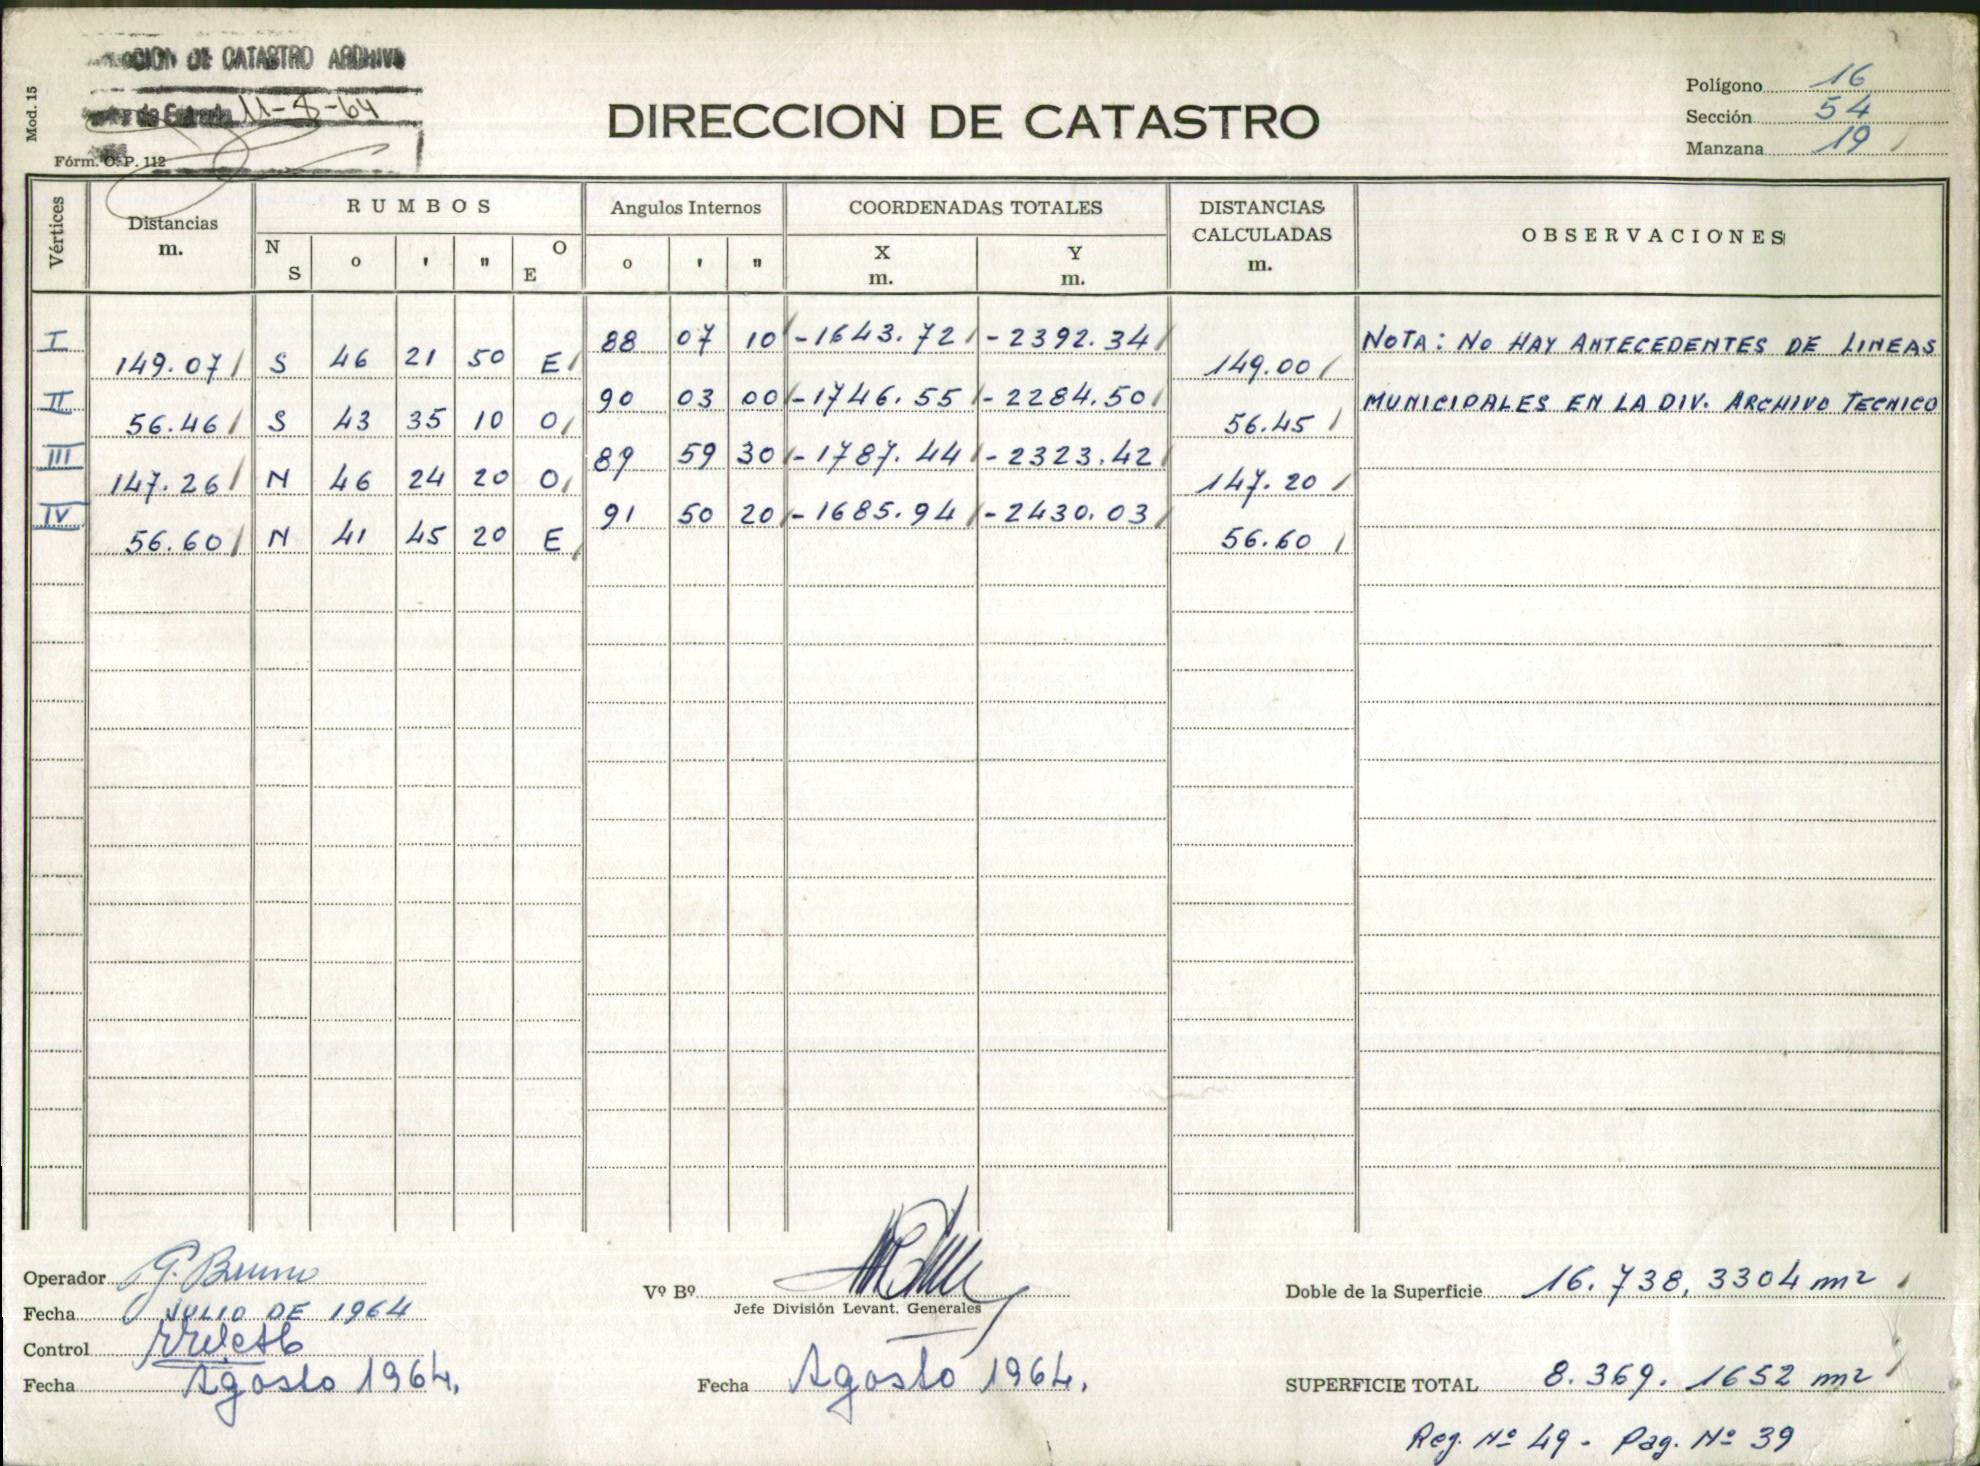 DE CATASTRO ARCHIVO
de Entrada 11-8-64
Mod. 15
Fórm. O. P. 112
DIRECCION DE CATASTRO
Polígono 16
Sección 54
Manzana 19
Vértices Distancias m. RUMBOS N S ° ' " O E Angulos Internos ° ' " COORDENADAS TOTALES X m. Y m. DISTANCIAS CALCULADAS m. OBSERVACIONES
I 88 07 10 -1643.72 -2392.34 NOTA: NO HAY ANTECEDENTES DE LINEAS
149.07 S 46 21 50 E 149.00
II 90 03 00 -1746.55 -2284.50 MUNICIPALES EN LA DIV. ARCHIVO TECNICO
56.46 S 43 35 10 O 56.45
III 89 59 30 -1787.44 -2323.42
147.26 N 46 24 20 O 147.20
IV 91 50 20 -1685.94 -2430.03
56.60 N 41 45 20 E 56.60
Operador G. Bruno
Fecha JULIO DE 1964
Control
Fecha Agosto 1964.
Vº Bº
Jefe División Levant. Generales
Fecha Agosto 1964.
Doble de la Superficie 16.738,3304 m2
SUPERFICIE TOTAL 8.369.1652 m2
Reg. Nº 49 - Pag. Nº 39